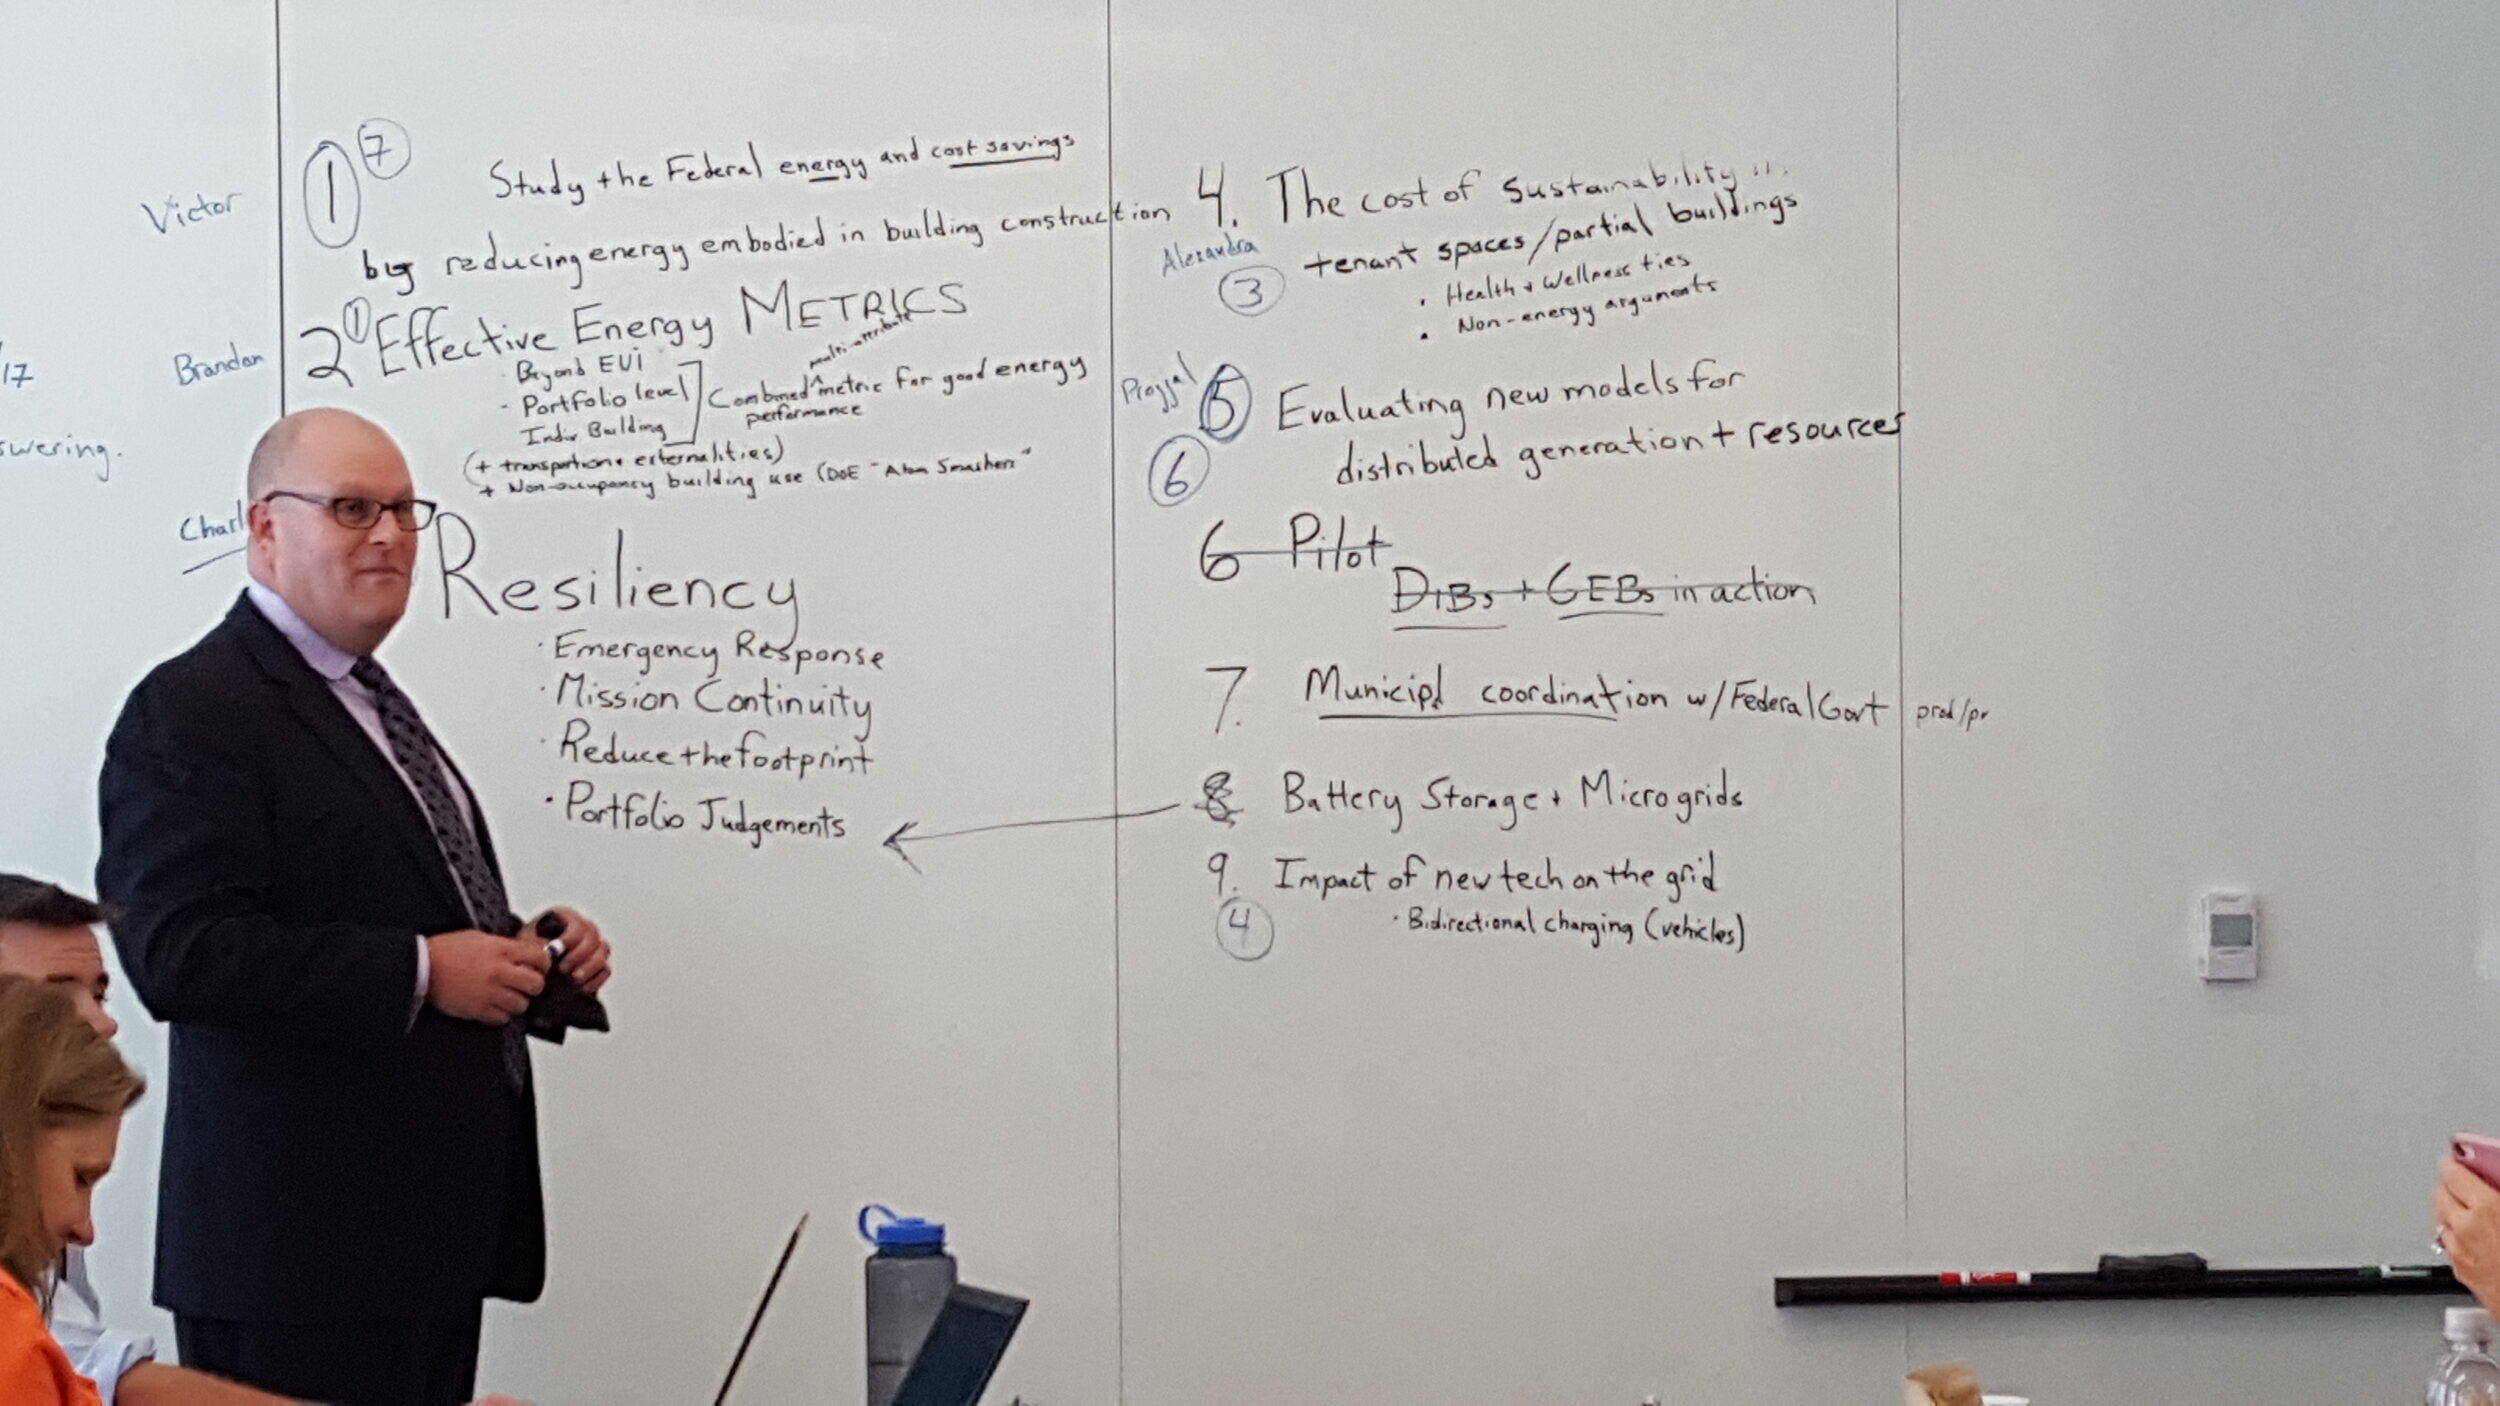 7
1
Victor
Study the Federal energy and cost savings
by reducing energy embodied in building construction
1
2 Effective Energy METRICS
Brandon
· Beyond EUI
- Portfolio level
Indiv Building
multi-attribute
Combined ^ metric for good energy
performance
(+ transportion + externalities)
+ Non-occupancy building use (DOE "Atom Smashers"
Charl
Resiliency
· Emergency Response
· Mission Continuity
· Reduce the footprint
· Portfolio Judgements
/17
swering.
4. The cost of sustainability in
tenant spaces/partial buildings
Alexandra
3
· Health + Wellness ties
· Non-energy arguments
5
Evaluating new models for
distributed generation + resources
6
6 Pilot
DIBs + GEBs in action
7. Municipl coordination w/Federal Govt
8 Battery Storage + Microgrids
9. Impact of new tech on the grid
4
· Bidirectional charging (vehicles)